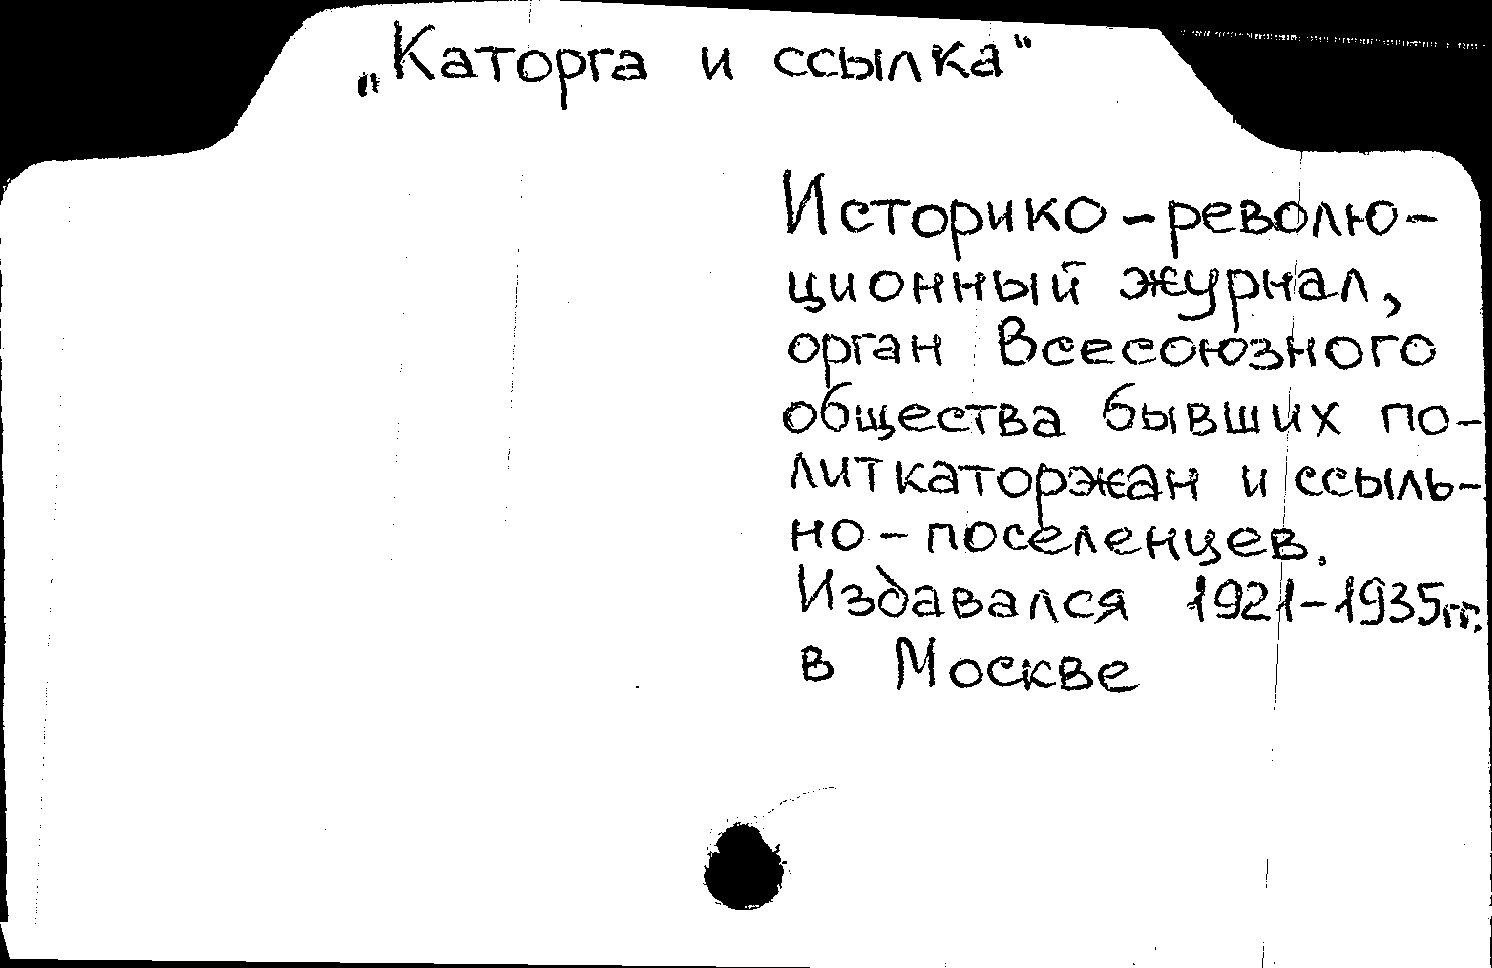 „Каторга и ссылка“
Историко-револю-
ционный журнал,
орган Всесоюзного
общества бывших по-
литкаторжан и ссыль-
но-поселенцев.
Издавался 1921-1935гг.
в Москве